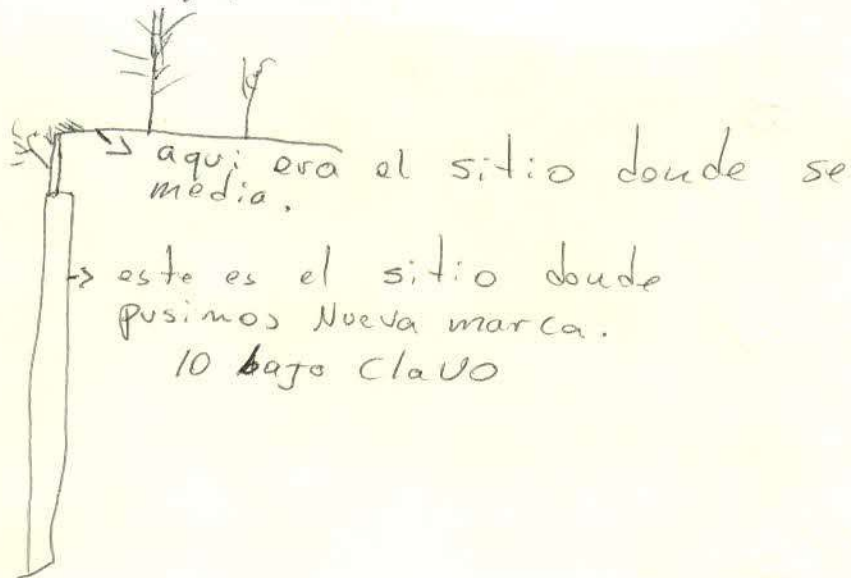 aqui era el sitio donde se
media.
este es el sitio donde
pusimos Nueva marca.
10 bajo Clavo